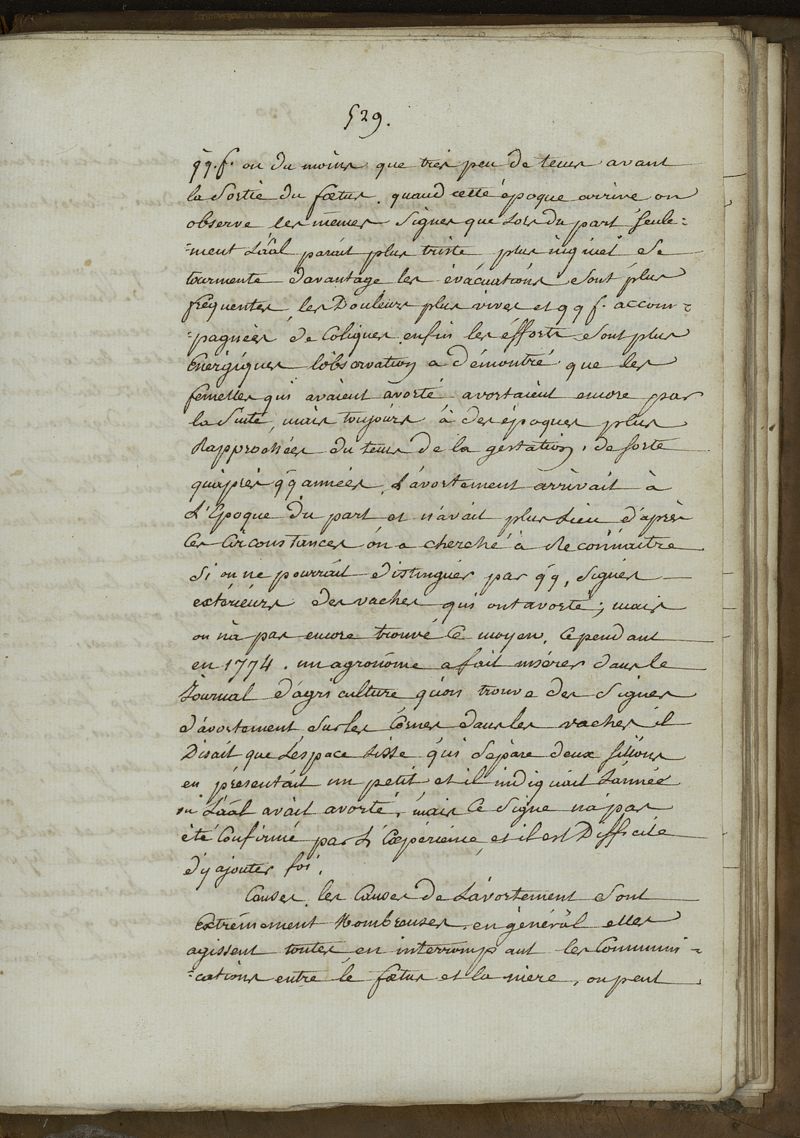 529.
qq. f. ou du moins que tres peu de tems avant
la Sortie du fœtus. quand cette époque arrive on
observe les mêmes Signes que Lors du part Seule=
=ment L'āal parait plus triste plus inquiet Se
tourmente davantage les évacuations Sont plus
frequentes, les Douleurs plus vives et qq f. accom=
=pagnées de Coliques enfin les efforts Sont plus
Energiques l'observation a démontré que les
femelles qui avaient avorté avortaient encore par
la Suite, mais toujours à des époques plus
Rapprochées du tems de la gestation, de Sorte
qu'après qq années, L'avortement arrivait à
L'Epoque du part et n'avait plus Lieu d'après
Ces Circonstances on a cherché à Reconnaitre
Si on ne pourrait distinguer par qq. Signes
extérieurs des vaches qui ont avorté; mais
on n'a pas encore trouvé Ce moyen. Cependant
en 1774. un agronome a fait insérer dans le
Journal d'agriculture qu'on trouve des Signes
d'avortement Sur les Cornes dans les vaches il
Disait que L'espace Lisse qui Sépare deux Sillons
en présentait un petit et il indiquait L'année
où L'āal avait avorté, mais Ce Signe n'a pas
été Confirmé par L'Expérience, et il est Difficile
d'y ajouter foi.
Causes. les Causes de L'avortement Sont
Extrêmement Nombreuses, en général elles
agissent toutes en interrompant les Communi=
=cations entre le fœtus et la mere, on peut